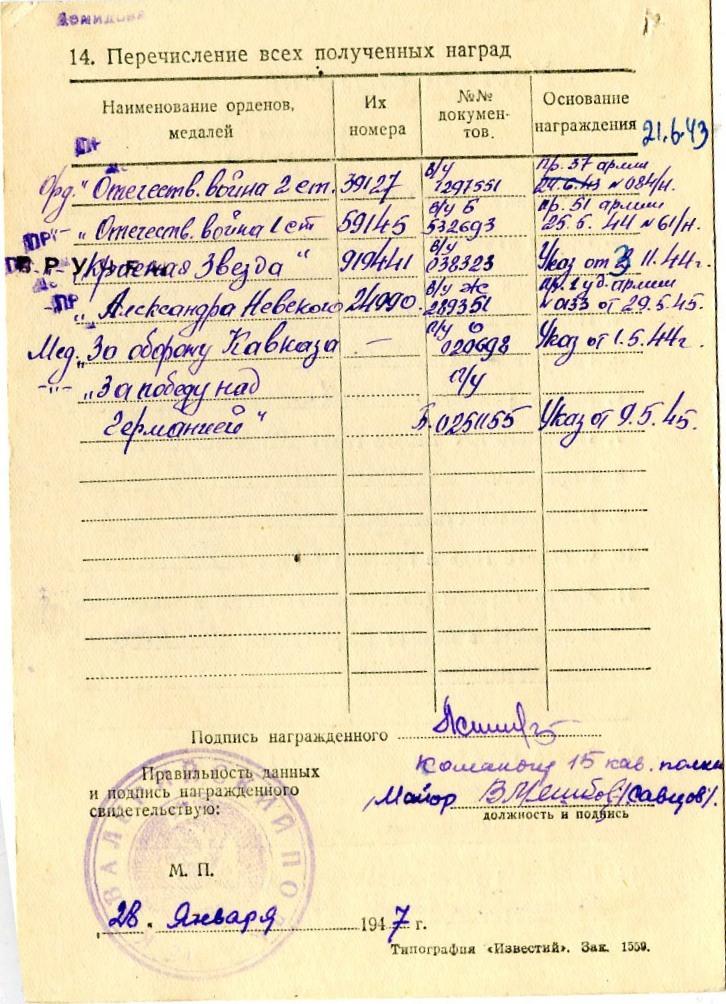 Демидова
14. Перечисление всех полученных наград
Наименование орденов, медалей
Их номера
№№ докумен- тов.
Основание награждения
21.6.43
Орд. "Отечеств. война 2 ст. 39127 в/у 1297551 пр. 37 армии 29.6.43 № 084/н.
-"- "Отечеств. война 1 ст 59145 в/у Б 532693 пр. 51 армии 25.5.44 № 61/н.
-"- "Красная Звезда" 919441 в/у 038323 Указ от 3 11.44г.
"Александра Невского 24990. в/у Ж 289351 пр. 1 уд. армии № 0133 от 29.5.45.
Мед. "За оборону Кавказа — п/у О 020698 Указ от 1.5.44г.
-"- "За победу над п/у
Германией" Б. 0251155 Указ от 9.5.45.
Подпись награжденного
Командир 15 кав. полка
Правильность данных
и подпись награжденного
свидетельствую:
Майор /Савцов/.
должность и подпись
М. П.
„28" Января 1947 г.
Типография «Известий». Зак. 1559.